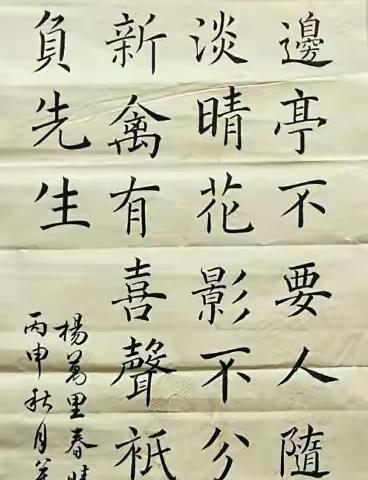 邊亭不要人隨
淡晴花影不分
新禽有喜聲衹
負先生
楊萬里春晴
丙申秋月